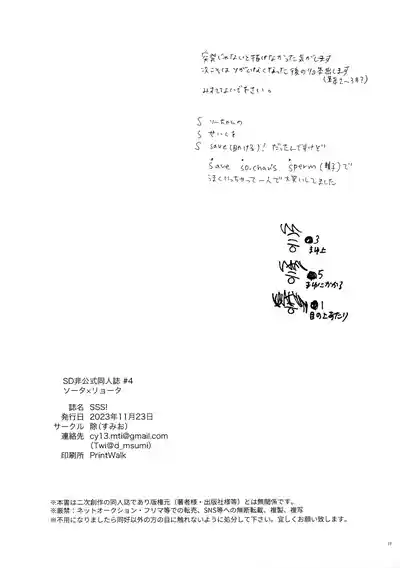 突発じゃないと描けなかった気がします
次こそはソがいなくなった後のリョ本出します
みすてないで下さい。
S ソーちゃんの
S せいしを
S save(助ける)! だったんですけど
save so.chan's sperm(精子)で
泣くけっちゃって一人で大笑いしてました
3
5
1
目の上あたり
SD非公式同人誌 #4
ソータ×リョータ
誌名 SSS!
発行日 2023年11月23日
サークル 除(すみお)
連絡先 cy13.mti@gmail.com
(Twi@d_msumi)
印刷所 PrintWalk
※本書は二次創作の同人誌であり版権元（著者様・出版社様等）とは無関係です。
※厳禁：ネットオークション・フリマ等での転売、SNS等への無断転載、複製、複写
※不用になりましたら同好以外の方の目に触れないように処分して下さい。宜しくお願い致します。